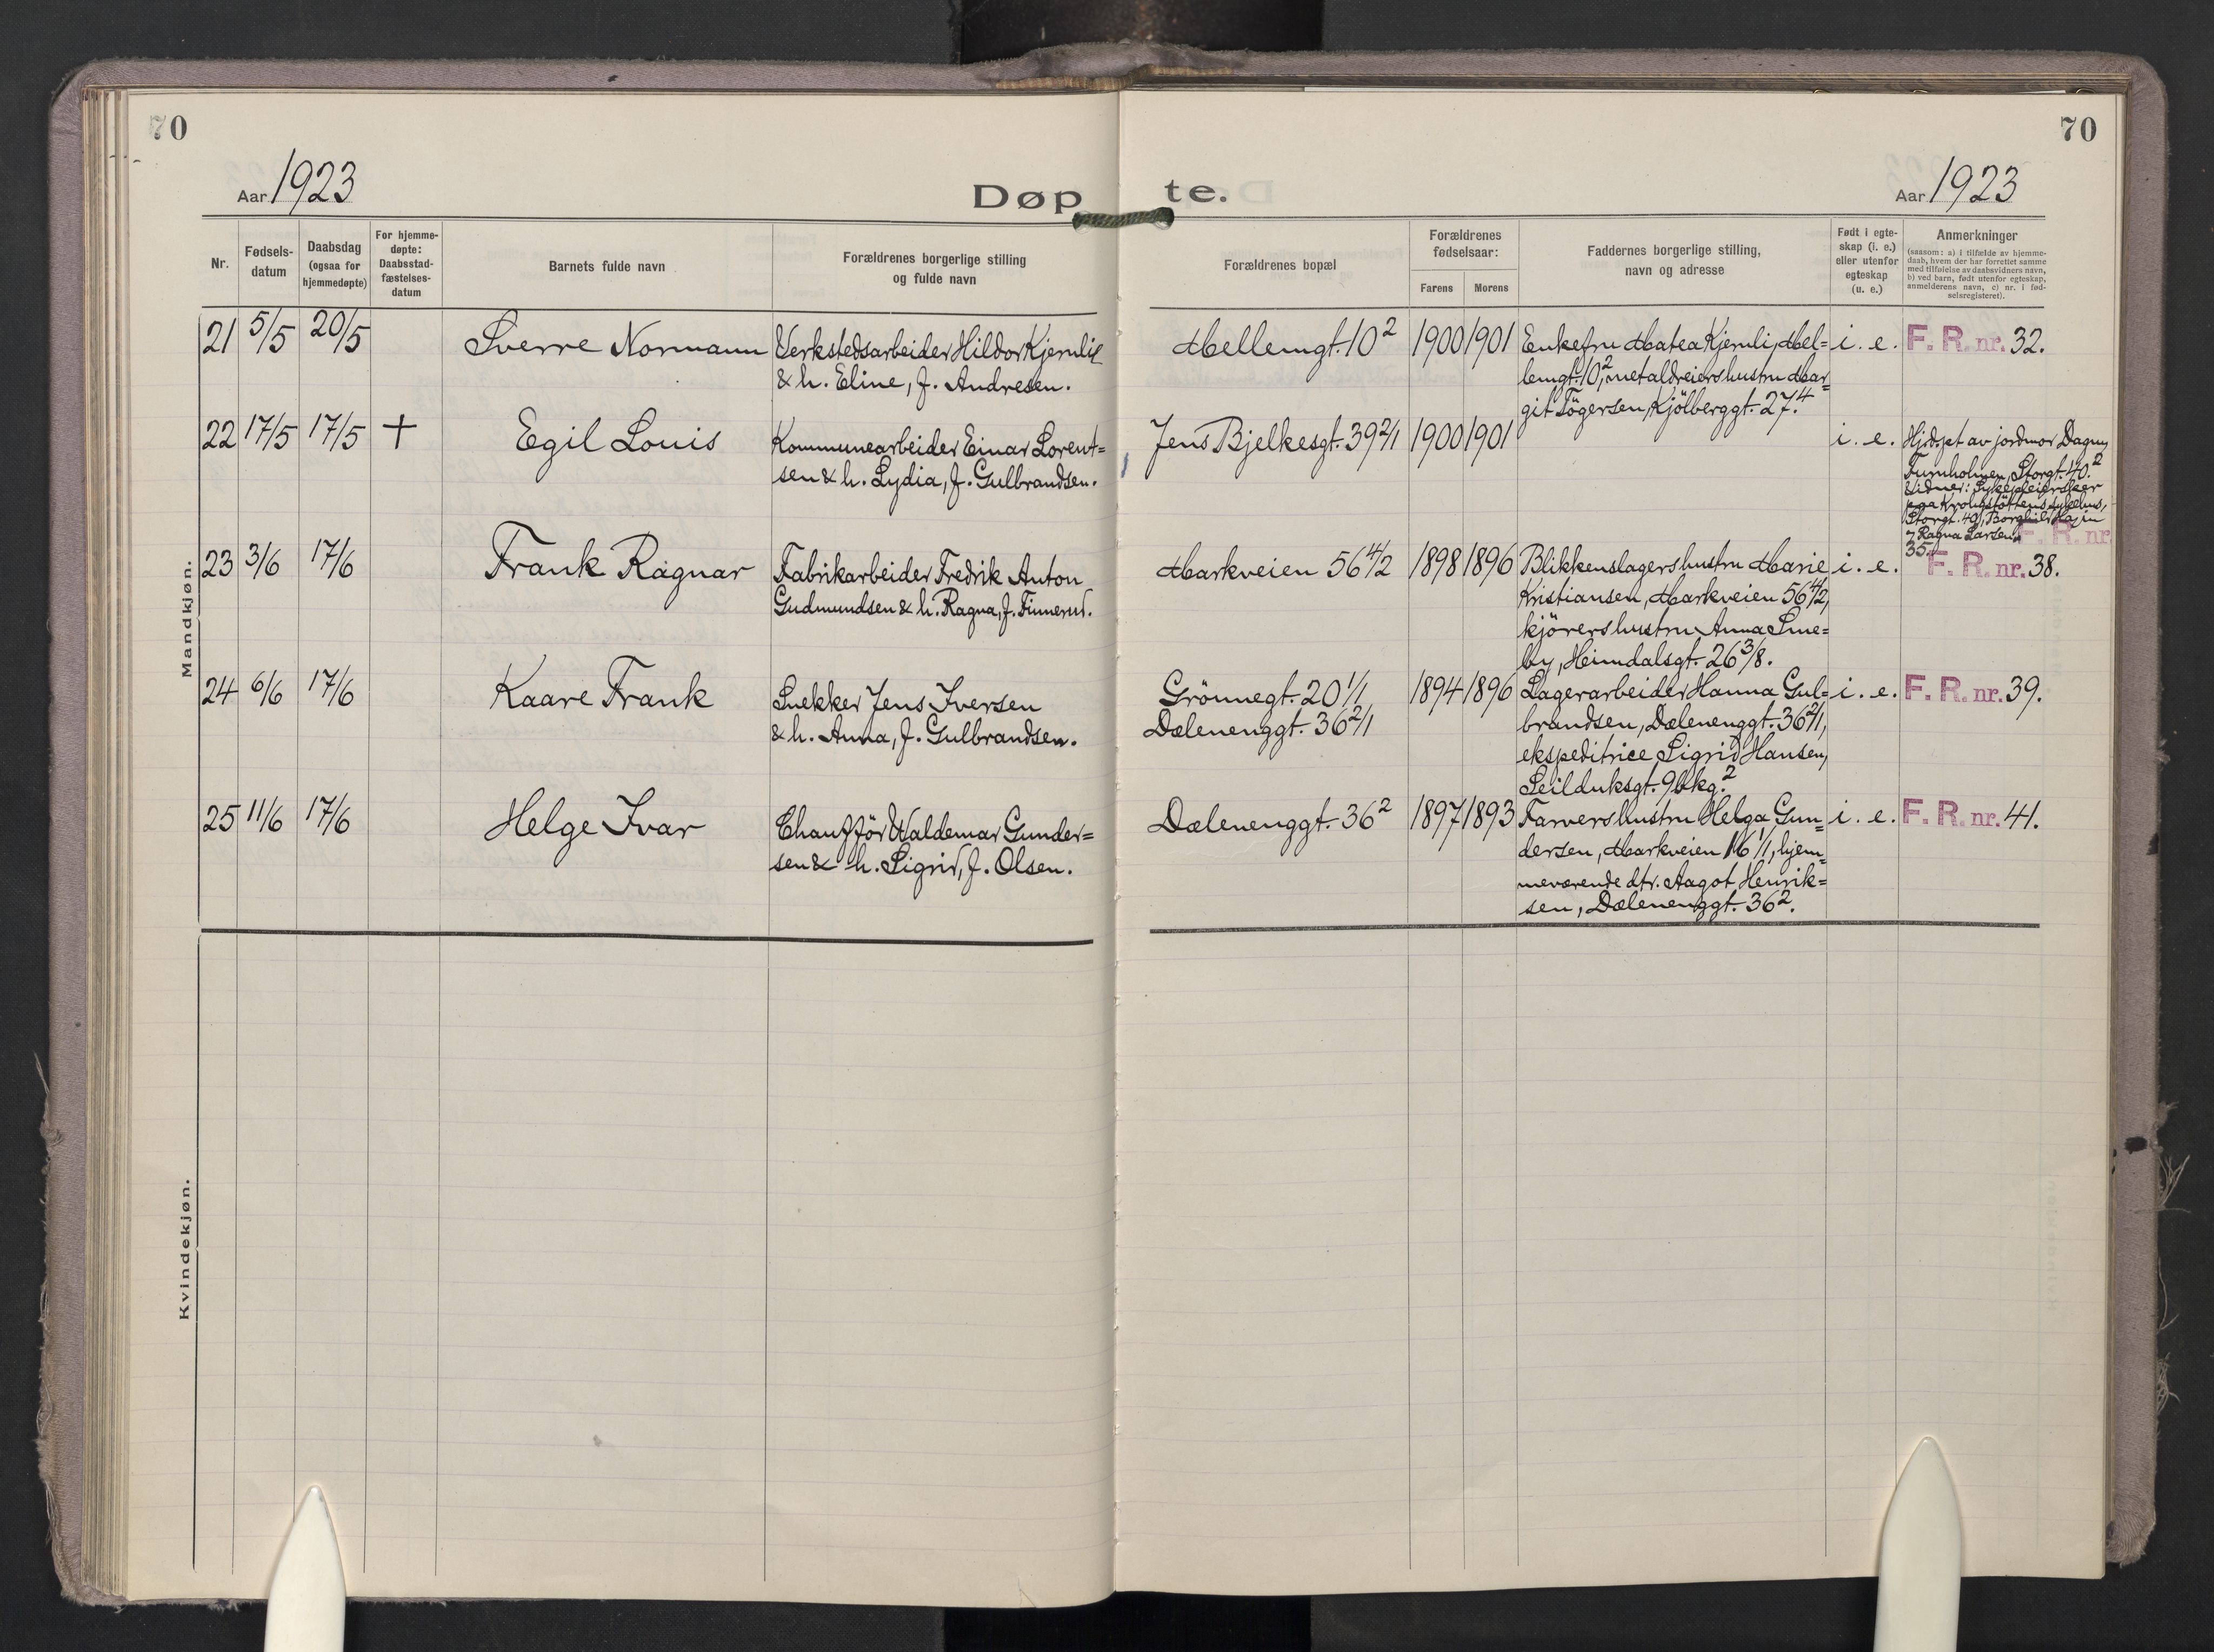 70
70
Aar 1923
Døpte.
Aar 1923
Nr.
Fødsels-
datum
Daabsdag
(ogsaa for
hjemmedøpte)
For hjemme-
døpte:
Daabsstad-
fæstelses-
datum
Barnets fulde navn
Forældrenes borgerlige stilling
og fulde navn
Forældrenes bopæl
Forældrenes
fødselsaar:
Farens
Morens
Faddernes borgerlige stilling,
navn og adresse
Født i egte-
skap (i. e.)
eller utenfor
egteskap
(u. e.)
Anmerkninger
(saasom: a) i tilfælde av hjemme-
daab, hvem der har forrettet samme
med tilføielse av daabsvidners navn,
b) ved barn, født utenfor egteskap,
anmelderens navn, c) nr. i fød-
selsregisteret).
Mandkjøn.
21 5/5 20/5 Sverre Normann
Verkstedsarbeider Hildor Kjernli
& h. Eline, f. Andresen.
Mellemgt. 10² 1900 1901
Enkefru Matea Kjernli, Mel=
lemgt. 10², metaldreiershustru Mar=
git Tögersen, Kjölberggt. 27⁴.
i. e. F. R. nr. 32.
22 17/5 17/5 + Egil Louis
Kommunearbeider Einar Lorent=
sen & h. Lydia, f. Gulbrandsen.
Jens Bjelkesgt. 39 2/1 1900 1901
i. e.
Hjdøpt av jordmor Dagny
Storgt. 40.²
Vidner: Sykepleiersker
Storgt. 40, Borghild
Ragna Larsen.
F. R. nr.
35.
23 3/6 17/6 Frank Ragnar
Fabrikarbeider Fredrik Anton
Gudmundsen & h. Ragna, f. Finnerud.
Markveien 56 4/2 1898 1896
Blikkenslagershustru Marie
Kristiansen, Markveien 56 4/2,
kjörershustru Anna Sme=
by, Heimdalsgt. 26 3/8.
i. e. F. R. nr. 38.
24 6/6 17/6 Kaare Frank
Snekker Jens Iversen
& h. Anna, f. Gulbrandsen.
Grönnegt. 20 1/1
Dælenenggt. 36 2/1
1894 1896
Lagerarbeider Hanna Gul=
brandsen, Dælenenggt. 36 2/1,
ekspeditrice Sigrid Hansen,
Seilduksgt. 9 bkg.²
i. e. F. R. nr. 39.
25 11/6 17/6 Helge Ivar
Chaufför Waldemar Gunder=
sen & h. Sigrid, f. Olsen.
Dælenenggt. 36² 1897 1893
Farvershustru Helga Gun=
dersen, Markveien 16 1/1, hjem=
meværende dtr. Aagot Henrik=
sen, Dælenenggt. 36².
i. e. F. R. nr. 41.
Kvindekjøn.